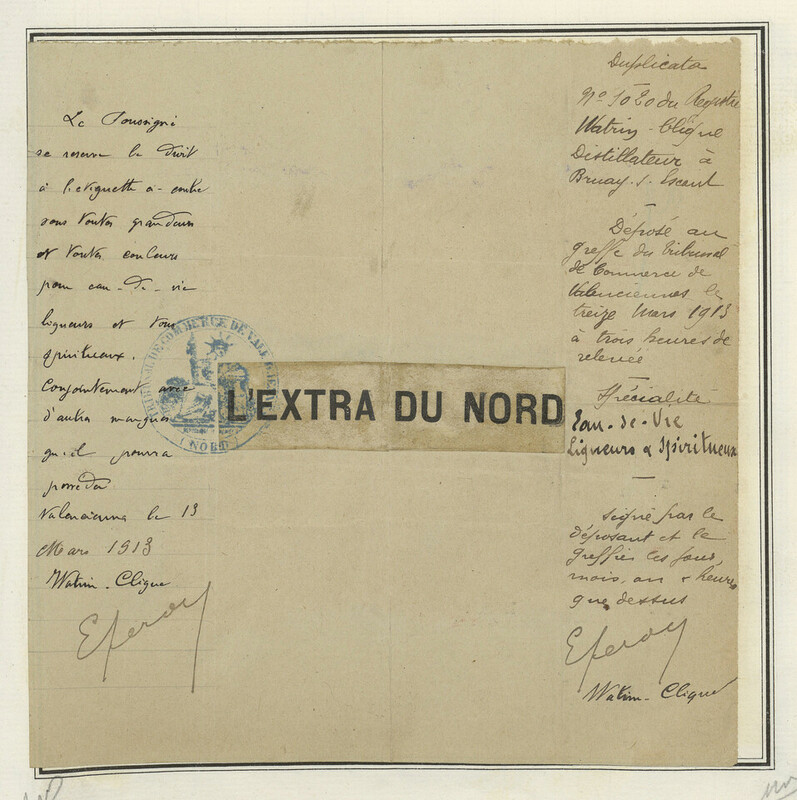 Le Soussigné
se reserve le droit
à l'etiquette ci-contre
sous toutes grandeurs
et toutes couleurs
pour eau-de-vie
liqueurs et tous
spiritueux.
Conjointement avec
d'autres marques
qu'il pourra
posséder
Valenciennes le 13
Mars 1913
Watrin-Clique
TRIBUNAL DE COMMERCE DE VALENCIENNES
(NORD)
L'EXTRA DU NORD
Duplicata
No 1020 du Registre
Watrin-Clique
Distillateur à
Bruay-s-Escaut
Déposé au
greffe du Tribunal
de Commerce de
Valenciennes le
treize Mars 1913
à trois heures de
relevée
Spécialité
Eau-de-Vie
Liqueurs & Spiritueux
Signé par le
déposant et le
greffier les jour,
mois, an & heure
que dessus
Watrin-Clique